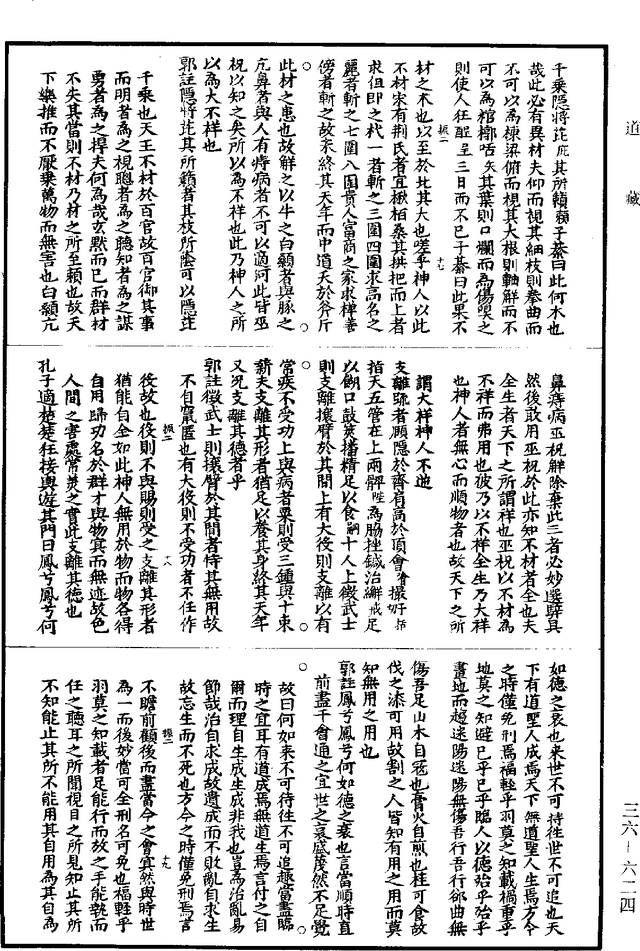 道藏
千乘隱將芘庇其所藾賴子綦曰此何木也
哉此必有異材夫仰而視其細枝則拳曲而
不可以為棟梁俯而視其大根則軸解而不
可以為棺槨咶矢其葉則口爛而為傷嗅之
則使人狂酲呈三日而不已子綦曰此果不
材之木也以至於此其大也嗟乎神人以此
不材宋有荆氏者宜楸栢桑其拱把而上者
求狙即之杙一者斬之三圍四圍求高名之
麗者斬之七圍八圍貴人富商之家求樿善
傍者斬之故未終其天年而中道夭於斧斤
此材之患也故解之以牛之白顙者與豚之
亢鼻者與人有痔病者不可以適河此皆巫
祝以知之矣所以為不祥也此乃神人之所
以為大不祥也
郭註隱將芘其所籟者其枝所蔭可以隱芘
千乘也天王不材於百官故百官御其事
而明者為之視聰者為之聽知者為之謀
勇者為之捍夫何為哉玄默而已而群材
不失其當則不材乃材之所至賴也故天
下樂推而不厭乘萬物而無害也白顙亢
鼻痔病巫祝解除棄此三者必妙選騂具
然後敢用巫祝於此亦知不材者全也夫
全生者天下之所謂祥也巫祝以不材為
不祥而弗用也彼乃以不祥全生乃大祥
也神人者無心而順物者也故天下之所
謂大祥神人不逆
支離疏者頤隱於齊肩高於頂會撮
指天五管在上兩髀陛為脇挫鍼治繲戒足
以餬口鼓筴播精足以食嗣十人上徵武士
則支離攘臂於其間上有大役則支離以有
常疾不受功上與病者粟則受三鍾與十束
薪夫支離其形者猶足以養其身終其天年
又況支離其德者乎
郭註徵武士則攘臂於其間者恃其無用故
不自竄匿也有大役則不受功者不任作
役故也役則不與賜則受之支離其形者
猶能自全如此神人無用於物而物各得
自用歸功名於群才與物冥而無迹故免
人間之害處常美之實此支離其德也
孔子適楚楚狂接輿遊其門曰鳳兮鳳兮何
如德之衰也来世不可待往世不可追也天
下有道聖人成焉天下無道聖人生焉方今
之時僅免刑焉福輕乎羽莫之知載禍重乎
地莫之知避已乎已乎臨人以德殆乎殆乎
畫地而趨迷陽迷陽無傷吾行吾行郤曲無
傷吾足山木自寇也膏火自煎也桂可食故
伐之漆可用故割之人皆知有用之用而莫
知無用之用也
郭註鳳兮鳳兮何如德之衰也言當順時直
前盡乎會通之宜世之哀盛蔑然不足覺
故曰何如来不可待往不可追趣當盡臨
時之宜耳有道成焉無道生焉言付之自
爾而理自生成生成非我也豈為治亂易
節哉治自求成故遺成而不敗亂自求生
故忘生而不死也方今之時僅免刑焉言
不瞻前顧後而盡當今之會冥然與時世
為一而後妙當可全刑名可免也福輕乎
羽莫之知載者足能行而放之手能執而
任之聽耳之所聞視目之所見知止其所
不知能止其所不能用其自用為其自為
三六－六二四